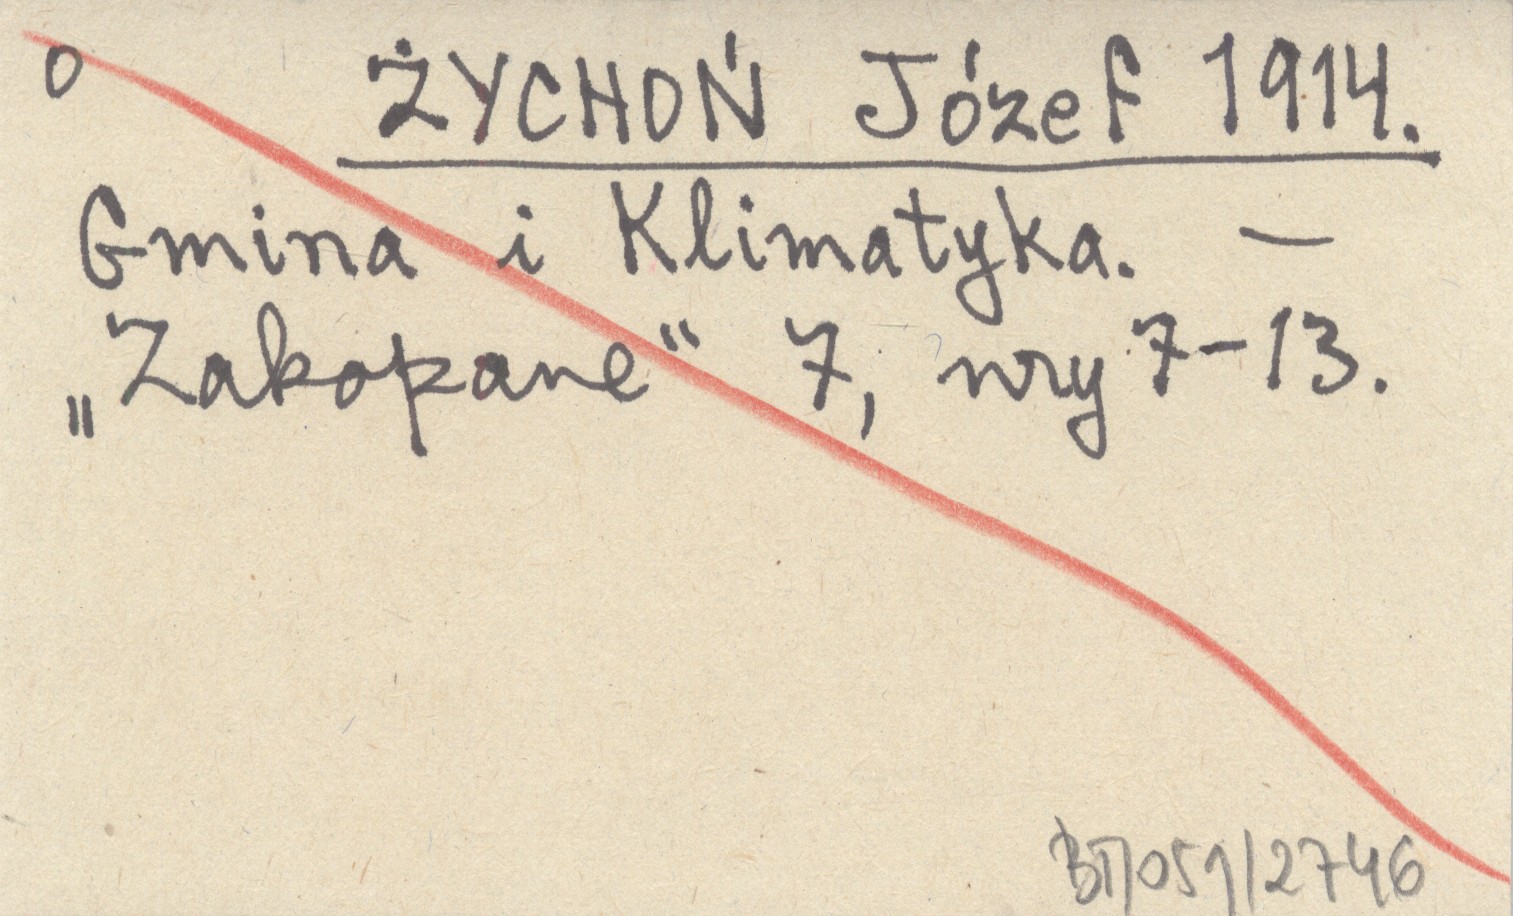 o ŻYCHOŃ Józef 1914.
Gmina i Klimatyka. —
„Zakopane" 7, nry 7-13.
BT/059/2746